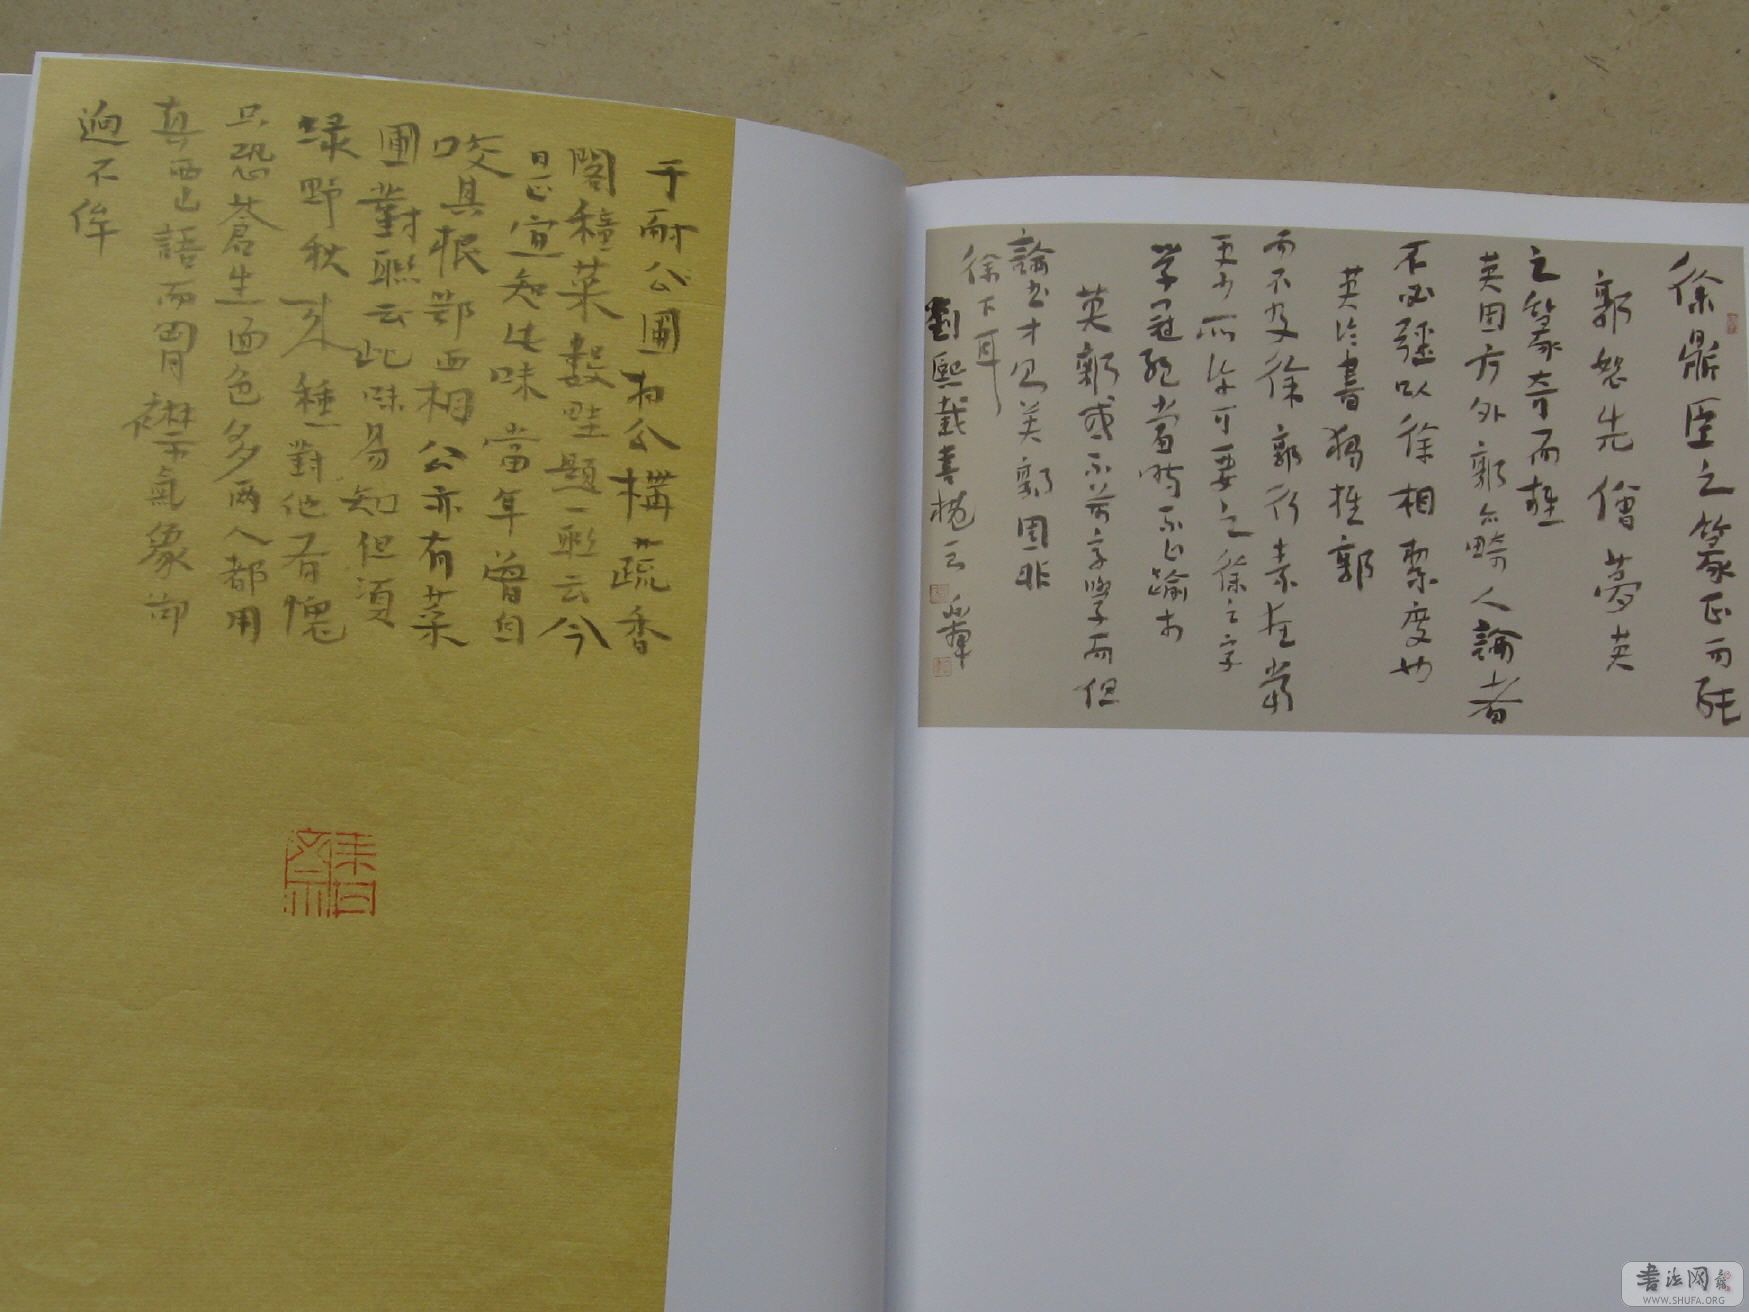 徐鼎臣之篆正而純
郭恕先僧夢英
之篆奇而雜
英固方外郭亦畸人論者
不必強以徐相絜度也
英論書獨推郭
而不及徐郭行素狂當
更少所許可要之徐之字
學冠絕當時不止踰於
英郭或不苟字學而但
論書才英郭固非
徐下耳
劉熙載書概云
于耐公圃相公構蔬香
閣種菜數畦題一聯云今
日正宜知此味當年曾自
咬其根鄂西相公亦有菜
圃對聯云此味易知但須
綠野秋來種對他有愧
只恐蒼生面色多兩人都用
真西山語而胸襟氣象卻
迥不侔
書法网
WWW.SHUFA.ORG